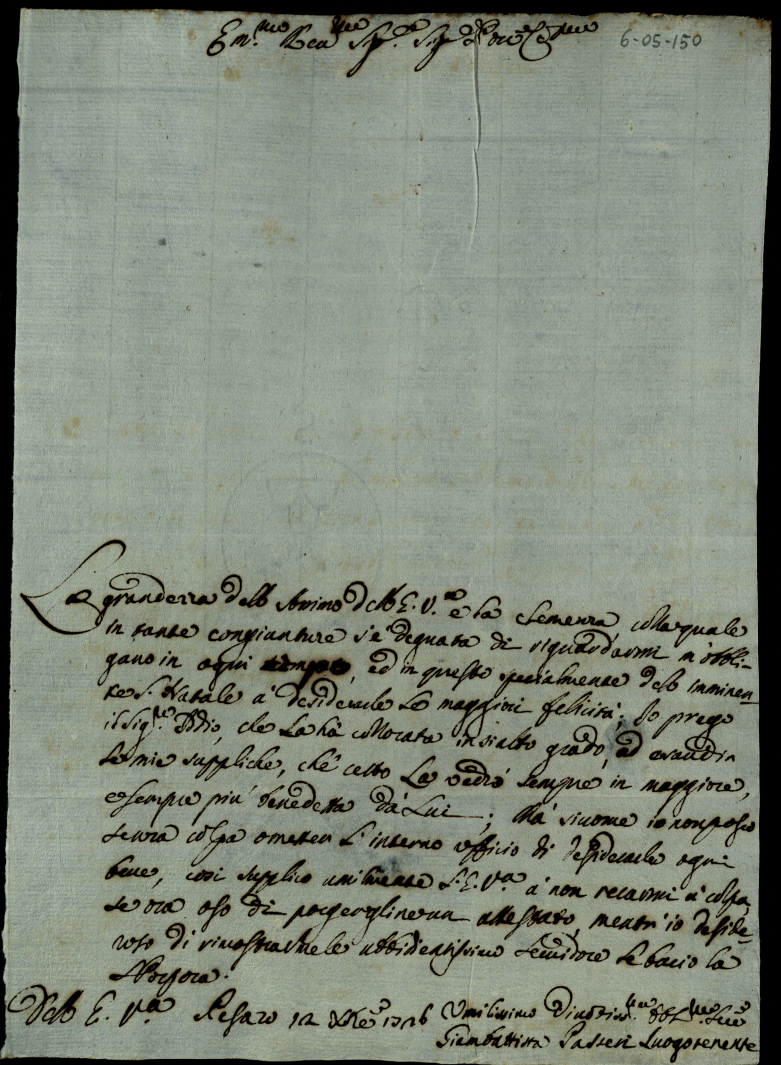 Em.mo Rea.mo Sig.re Sig.re
6-05-150
La grandezza dell'Animo dell'E. V.ra e la clemenza, colla quale
in tante congiunture s'è degnata di riguardarmi m'obbli-
gano in ogni tempo, ed in questo specialmente dell'imminen-
te S. Natale à desiderarle le maggiori felicità; Io prego
il Sig.re Iddio, che la hà collocata in sì alto grado, ad esaudir
le mie suppliche, che certo La vedrò sempre in maggiore,
e sempre più benedetta da Lui; Mà siccome io non posso
senza colpa ometter l'interno ufficio di desiderarle ogni
bene, così supplico umilmente l'E. V.ra à non recarmi à colpa,
se ora oso di porgerglene un attestato, mentr'io deside-
roso di rimostrarmele ubbidientissimo servidore le bacio la
Porpora.
Dell'E. V.ra Pesaro 12 Xbre 1726 Umilissimo Divotiss.mo Obbl.mo Ser.e
Giambattista Passeri Luogotenente